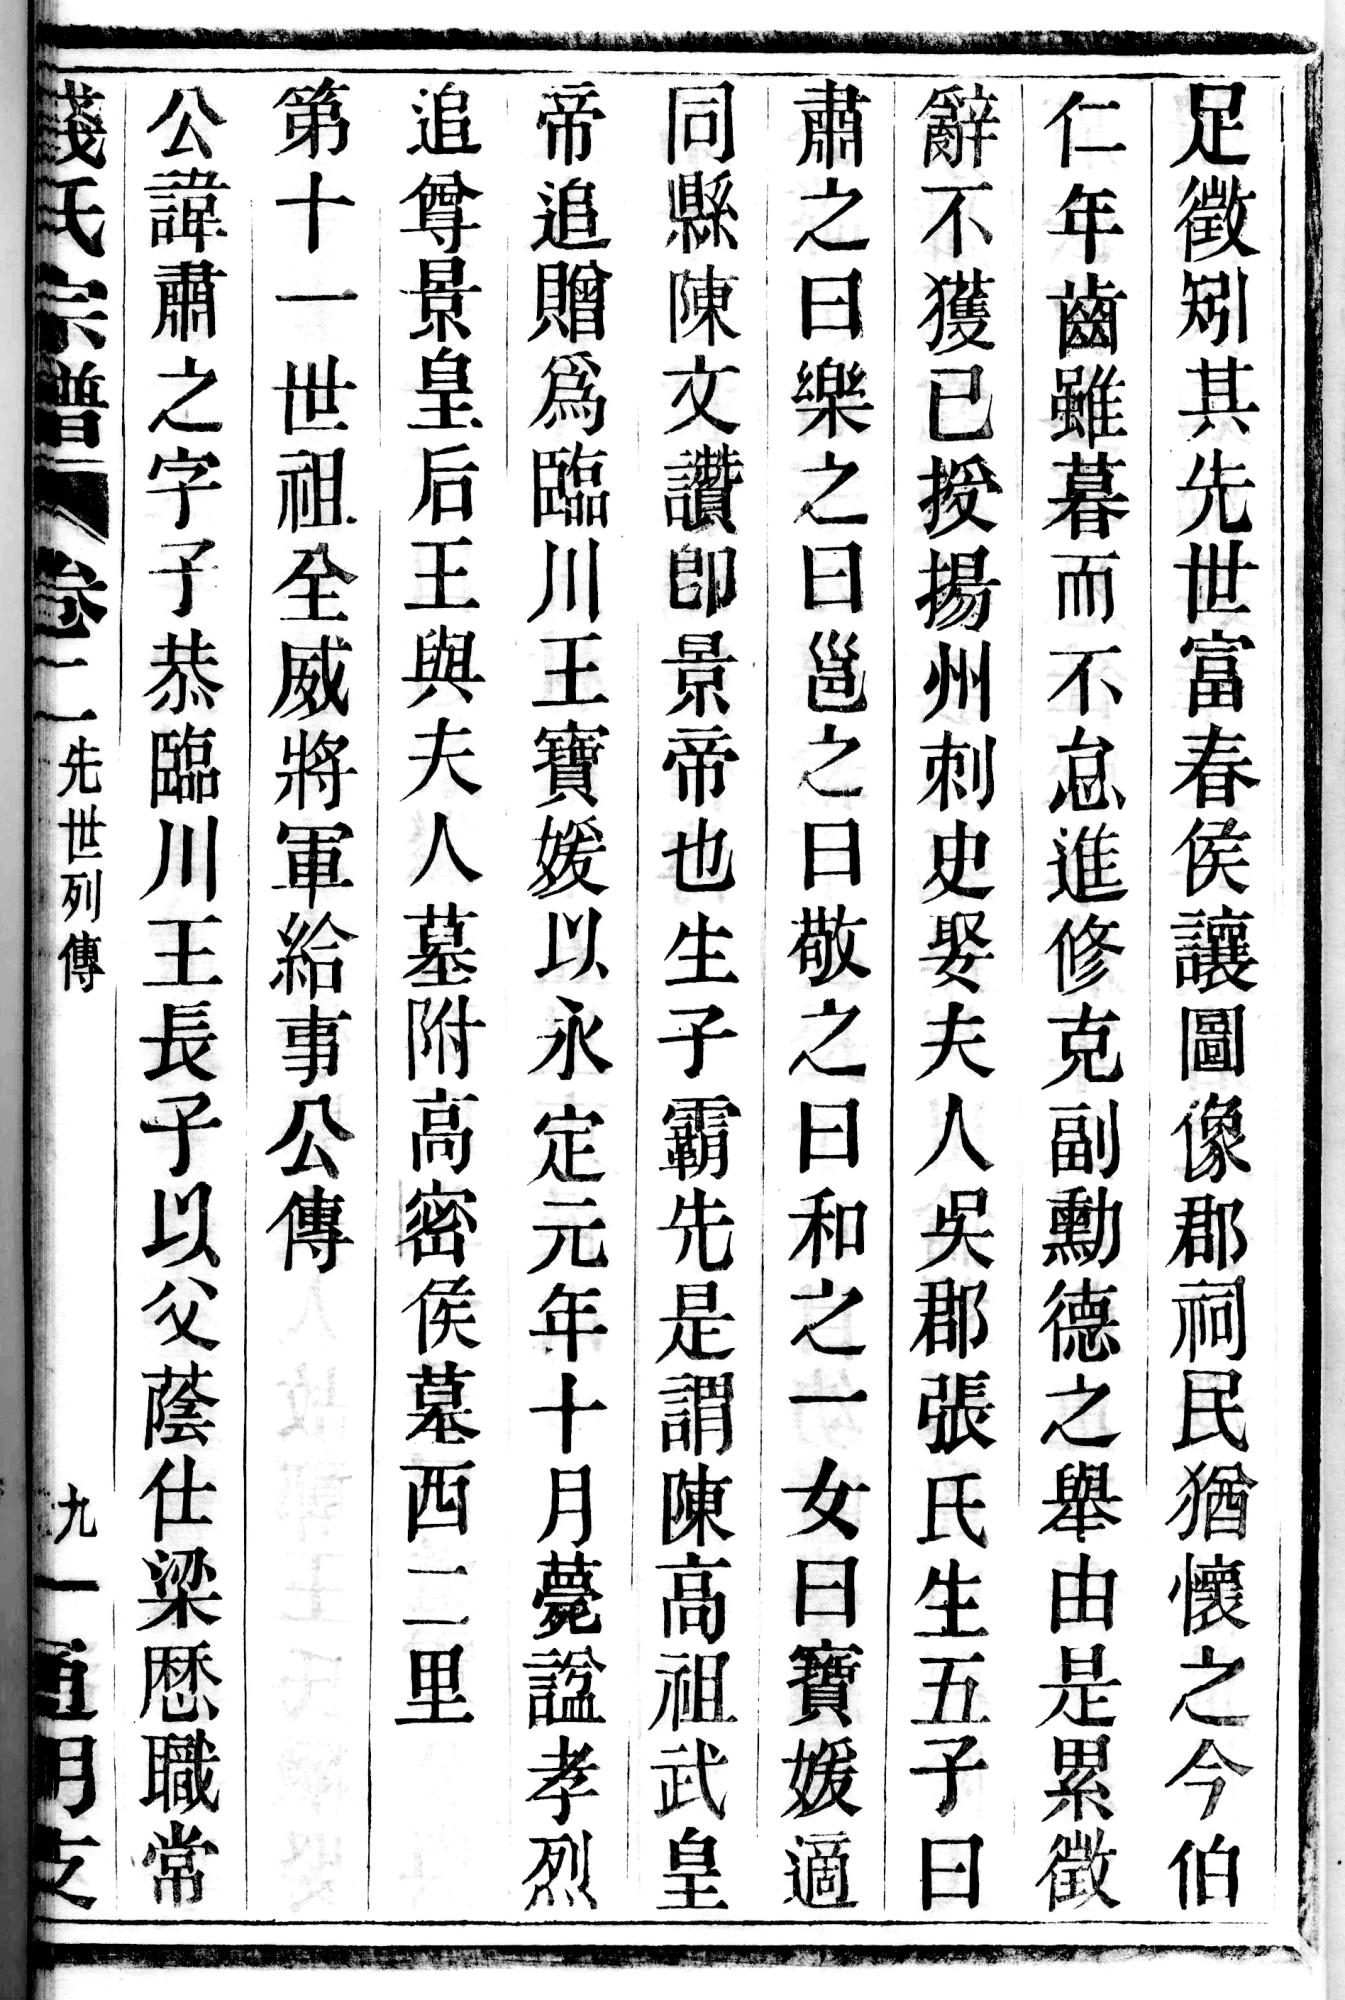 足徵矧其先世富春侯讓圖像郡祠民猶懷之今伯
仁年齒雖暮而不怠進修克副勳德之舉由是累徵
辭不獲已授揚州刺史娶夫人吳郡張氏生五子曰
肅之曰樂之曰邕之曰敬之曰和之一女曰寶媛適
同縣陳文讚即景帝也生子霸先是謂陳高祖武皇
帝追贈爲臨川王寶媛以永定元年十月薨諡孝烈
追尊景皇后王與夫人墓附高密侯墓西二里
第十一世祖全威將軍給事公傳
公諱肅之字子恭臨川王長子以父蔭仕梁歷職常
錢氏宗譜 卷二 先世列傳 九 通明支